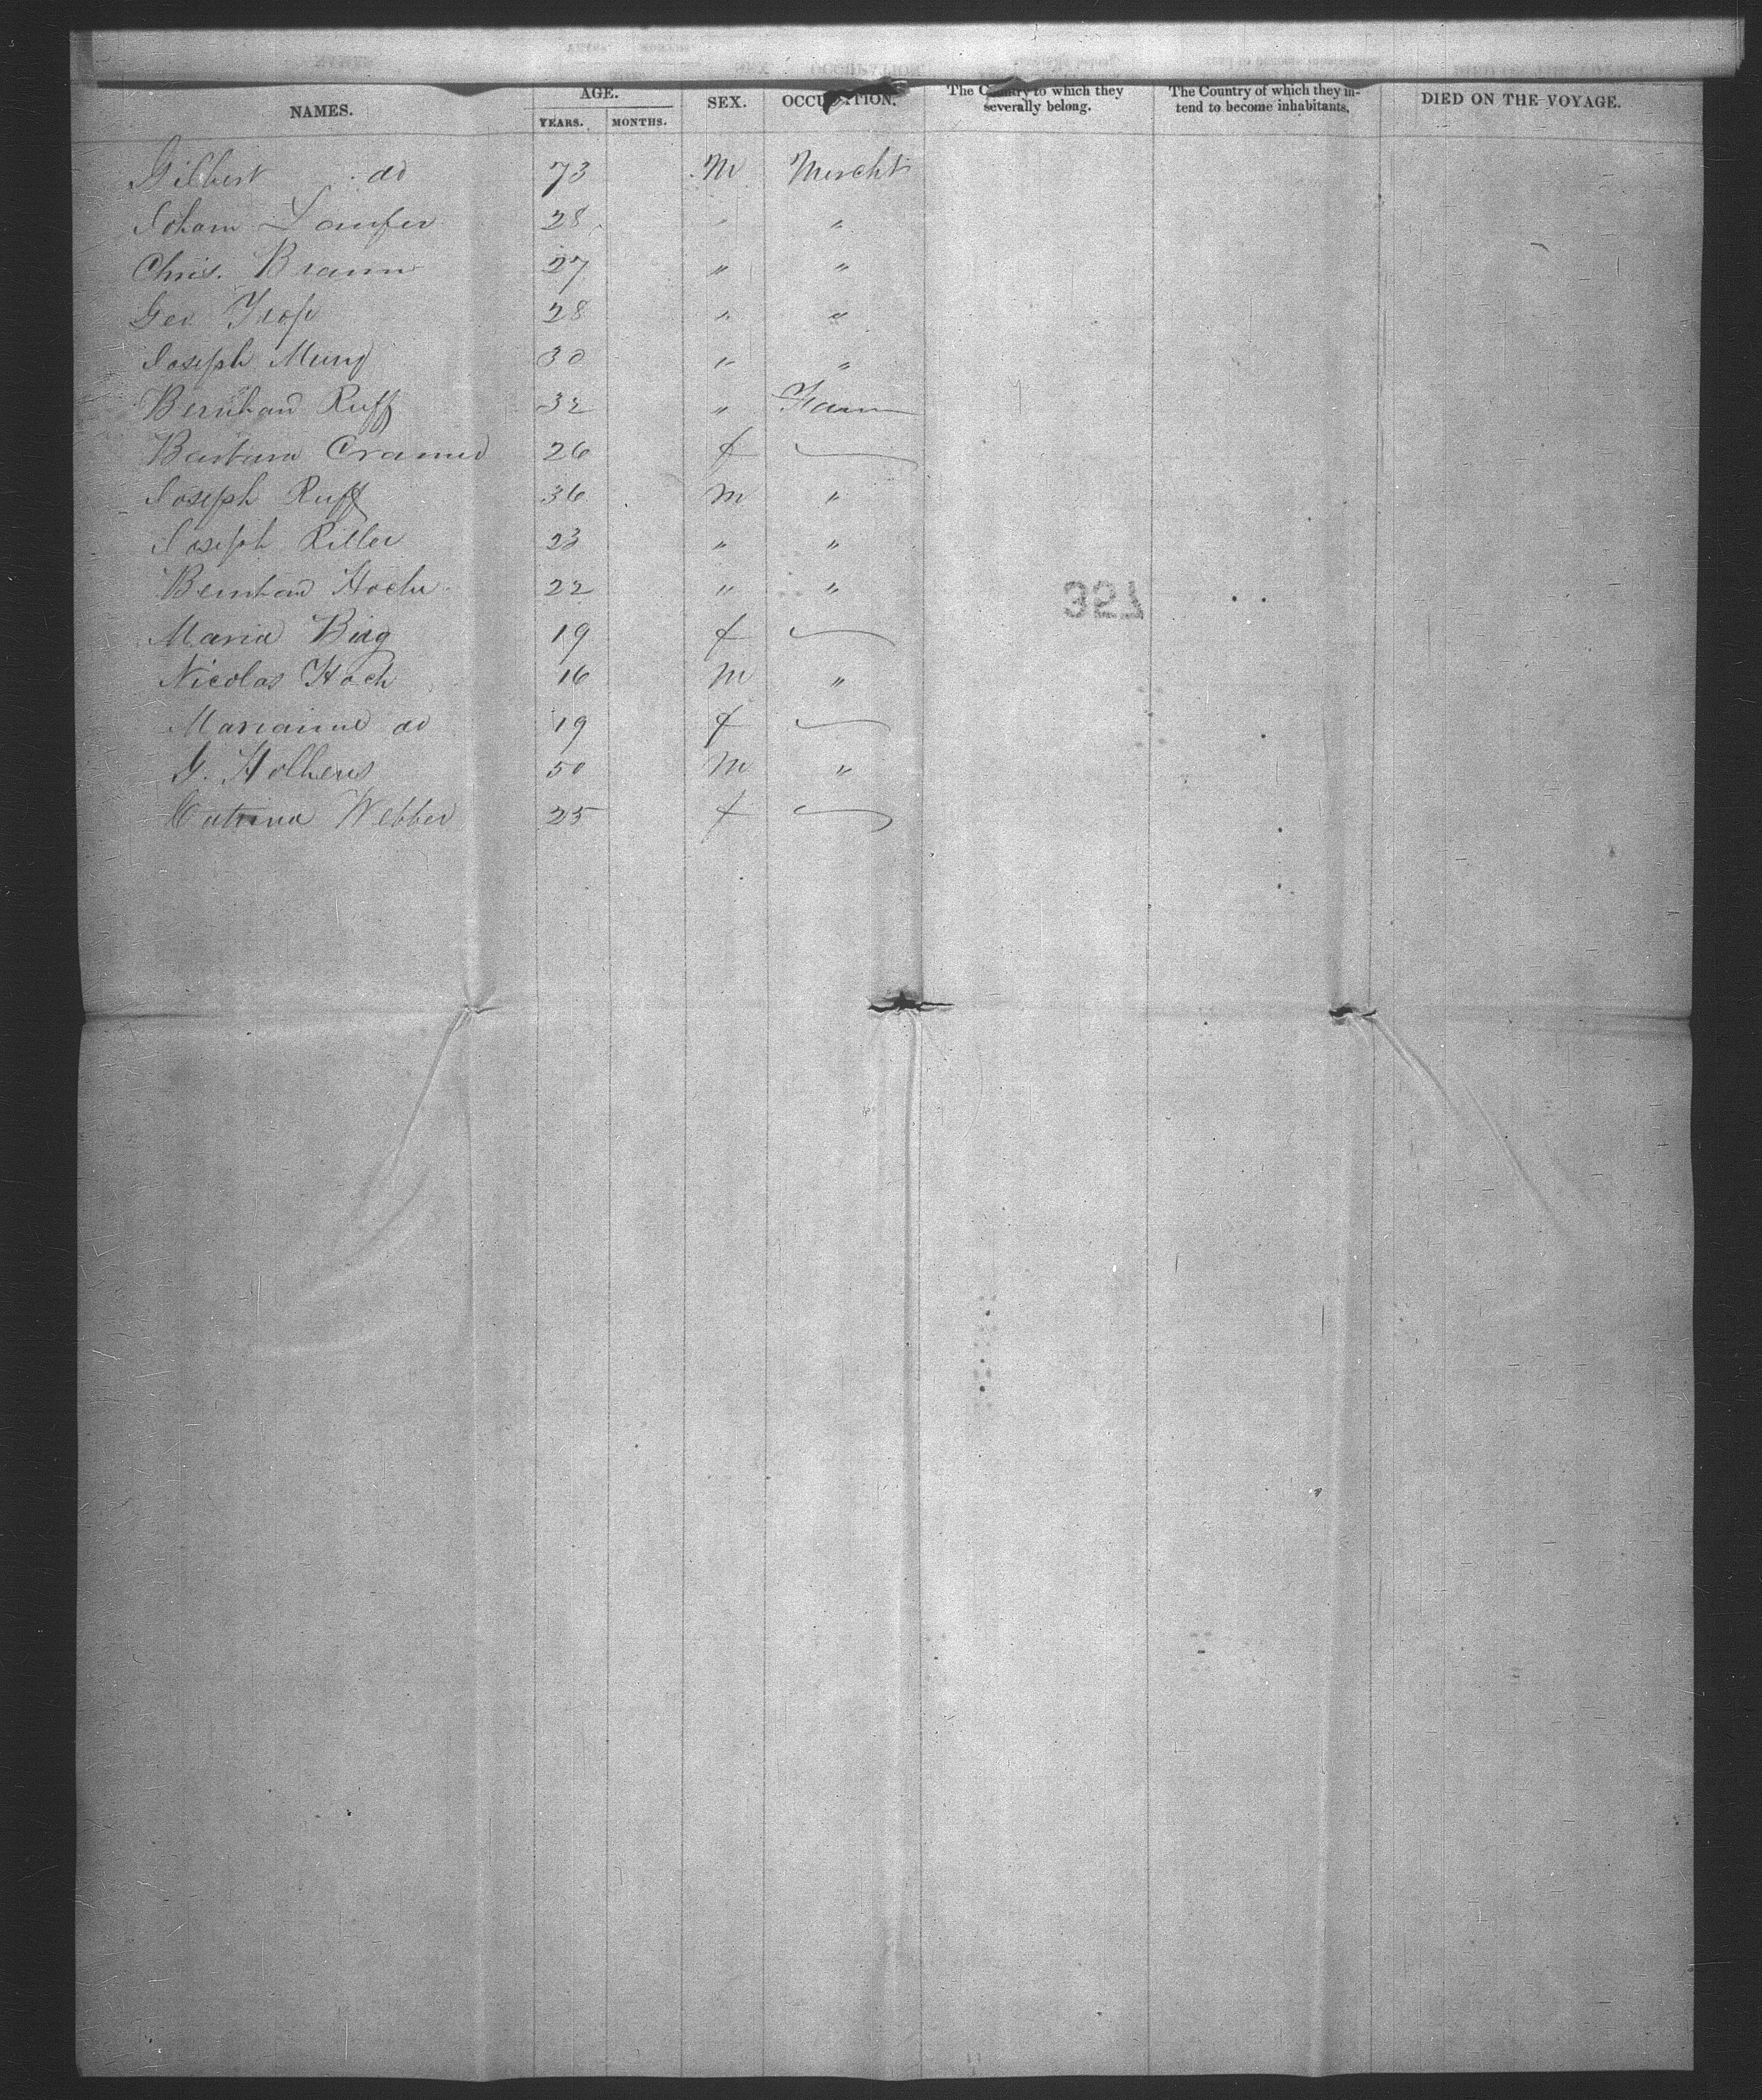 NAMES. AGE. YEARS. MONTHS. SEX. OCCUPATION. The Country to which they severally belong. The Country of which they intend to become inhabitants. DIED ON THE VOYAGE.
Gilbert do 73 M Mercht
Joham Laufer 28 " "
Chris. Braun 27 " "
Geo 28 " "
Joseph 30 " "
Bernhard Ruff 32 " Farm
Barbara Cramer 26 f
Joseph Ruff 36 M "
Joseph Riller 23 " "
Bernhard Hoch 22 " "
Maria 19 f
Nicolas Hoch 16 M "
Marianne do 19 f
G. 50 M "
Catrina Webber 25 f
357